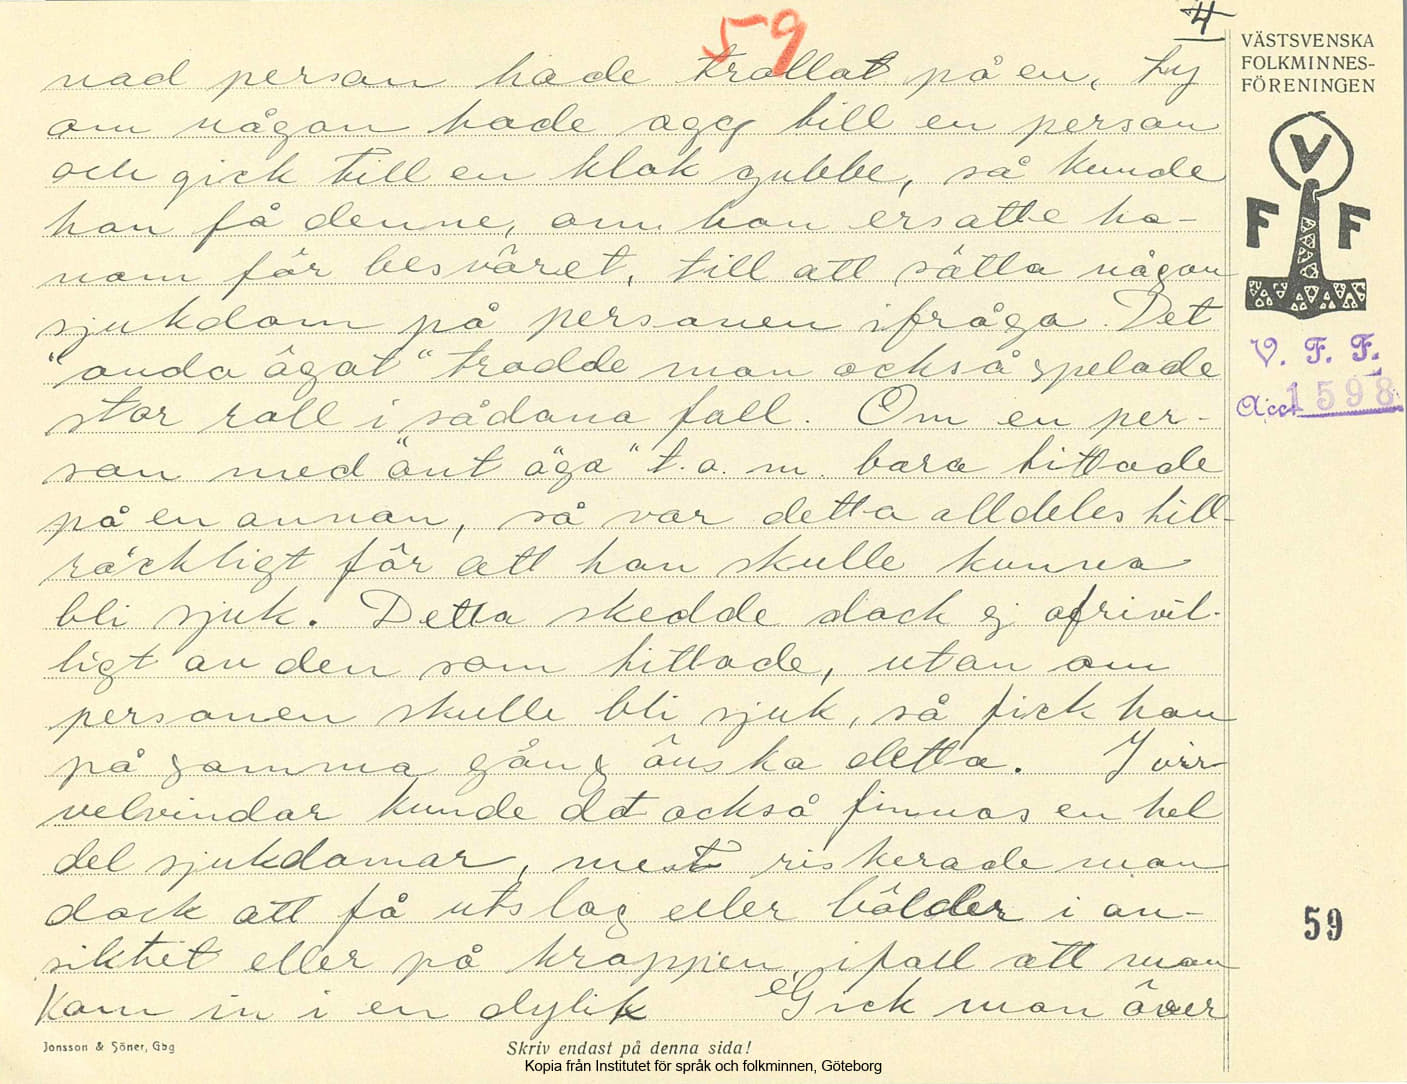 59
4
VÄSTSVENSKA
FOLKMINNES-
FÖRENINGEN
VFF
V. F. F.
Acc 1598
nad person hade trollat på en, ty
om någon hade agg till en person
och gick till en klok gubbe, så kunde
han få denne, om han ersatte ho-
nom för besväret, till att sätta någon
sjukdom på personen ifråga. Det
"onda ögat" trodde man också spelade
stor roll i sådana fall. Om en per-
son med "ont öga" t.o.m. bara tittade
på en annan, så var detta alldeles till-
räckligt för att han skulle kunna
bli sjuk. Detta skedde dock ej ofrivil-
ligt av den som tittade, utan om
personen skulle bli sjuk, så fick han
på samma gång önska detta. I virr-
velvindar kunde det också finnas en hel
del sjukdomar, mest riskerade man
dock att få utslag eller bölder i an-
siktet eller på kroppen, ifall att man
kom in i en dylik Gick man över
59
Jonsson & Söner, Gbg
Skriv endast på denna sida!
Kopia från Institutet för språk och folkminnen, Göteborg